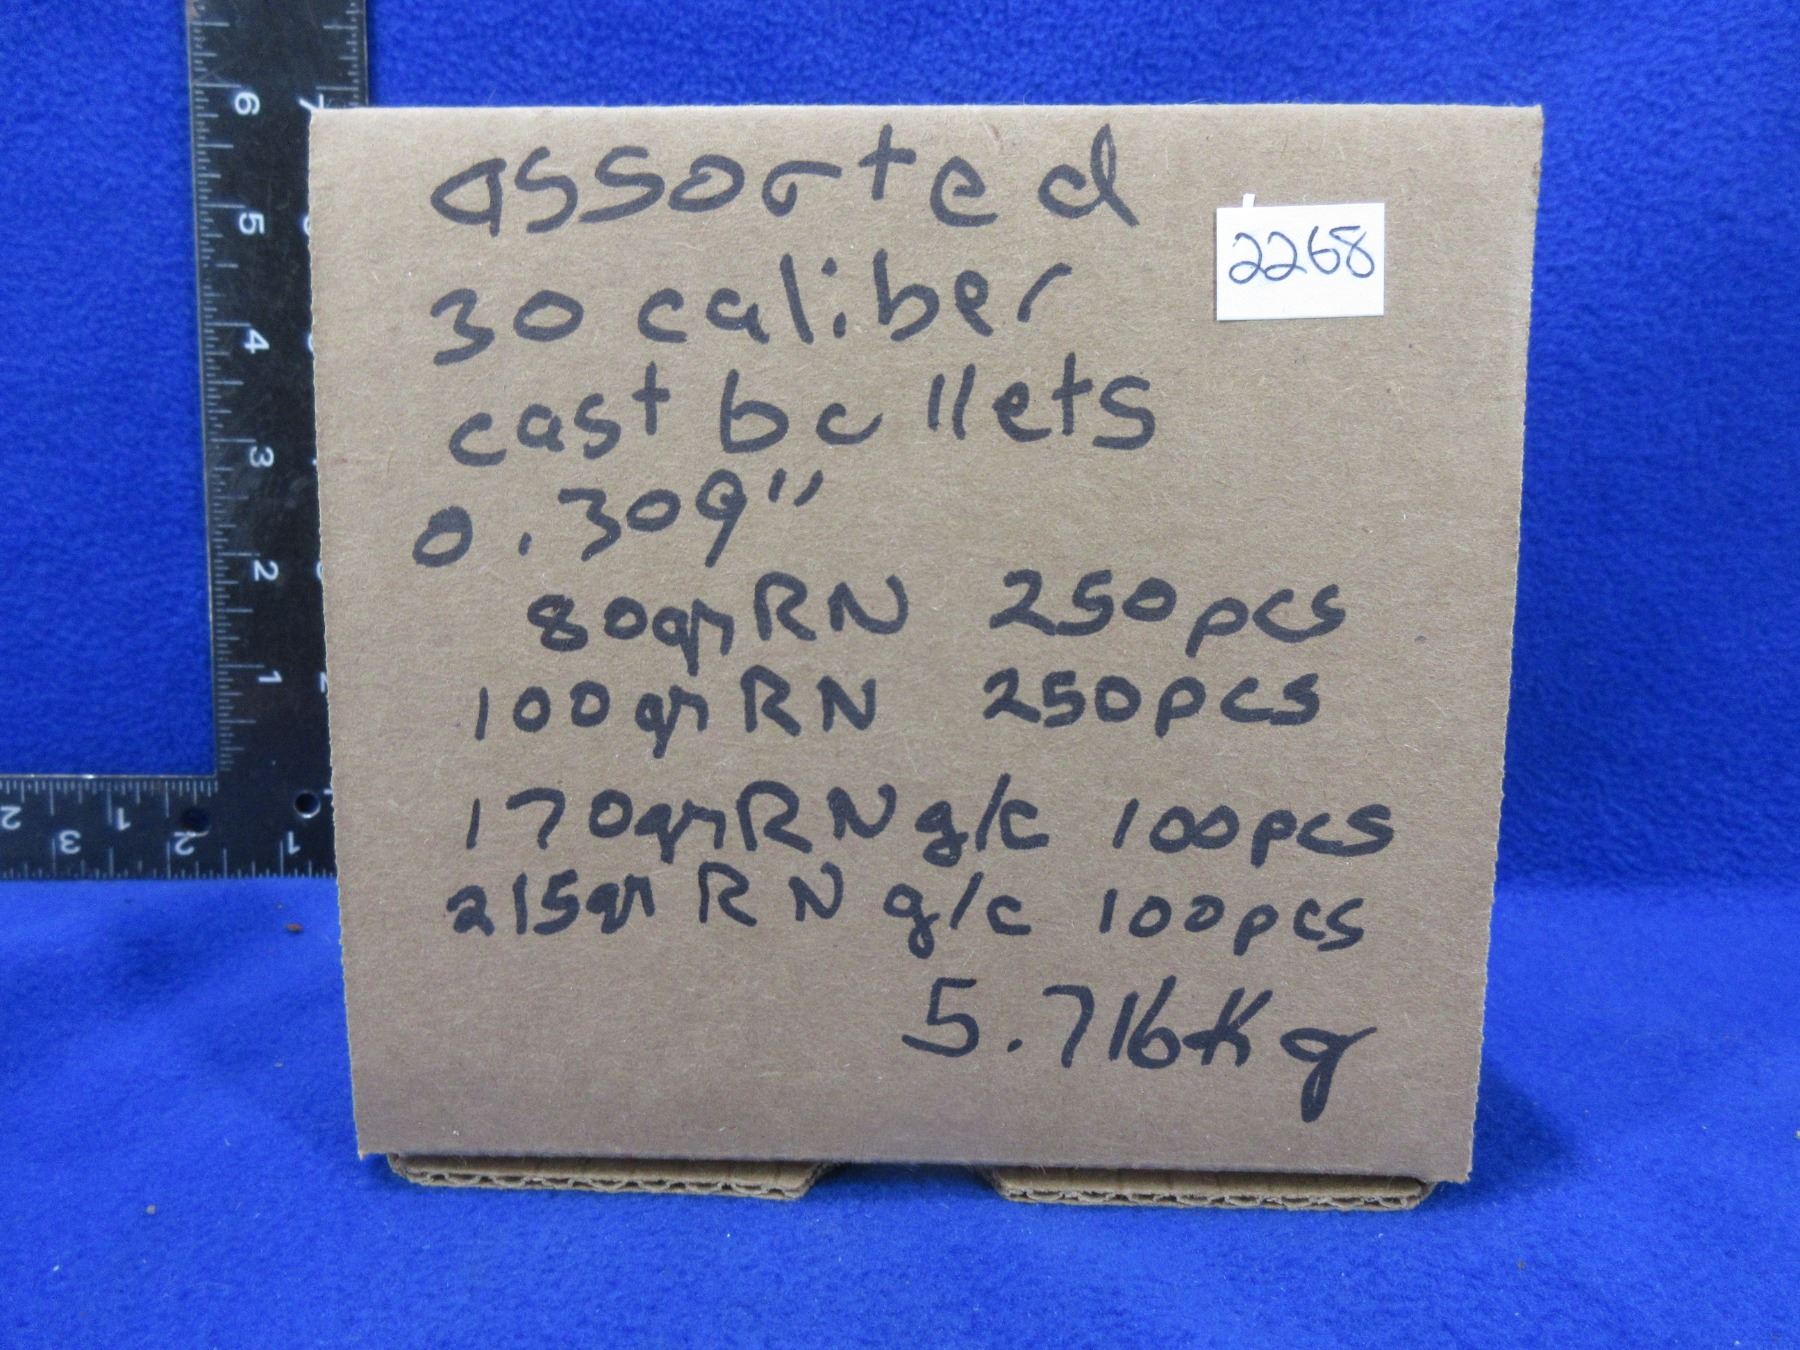 assorted
2268
30 caliber
cast bullets
0.309"
80gr RN 250pcs
100gr RN 250pcs
170gr RN g/c 100pcs
215gr RN g/c 100pcs
5.716Kg
6 7
5
4
3
2
1 2
2 1
3 2 1